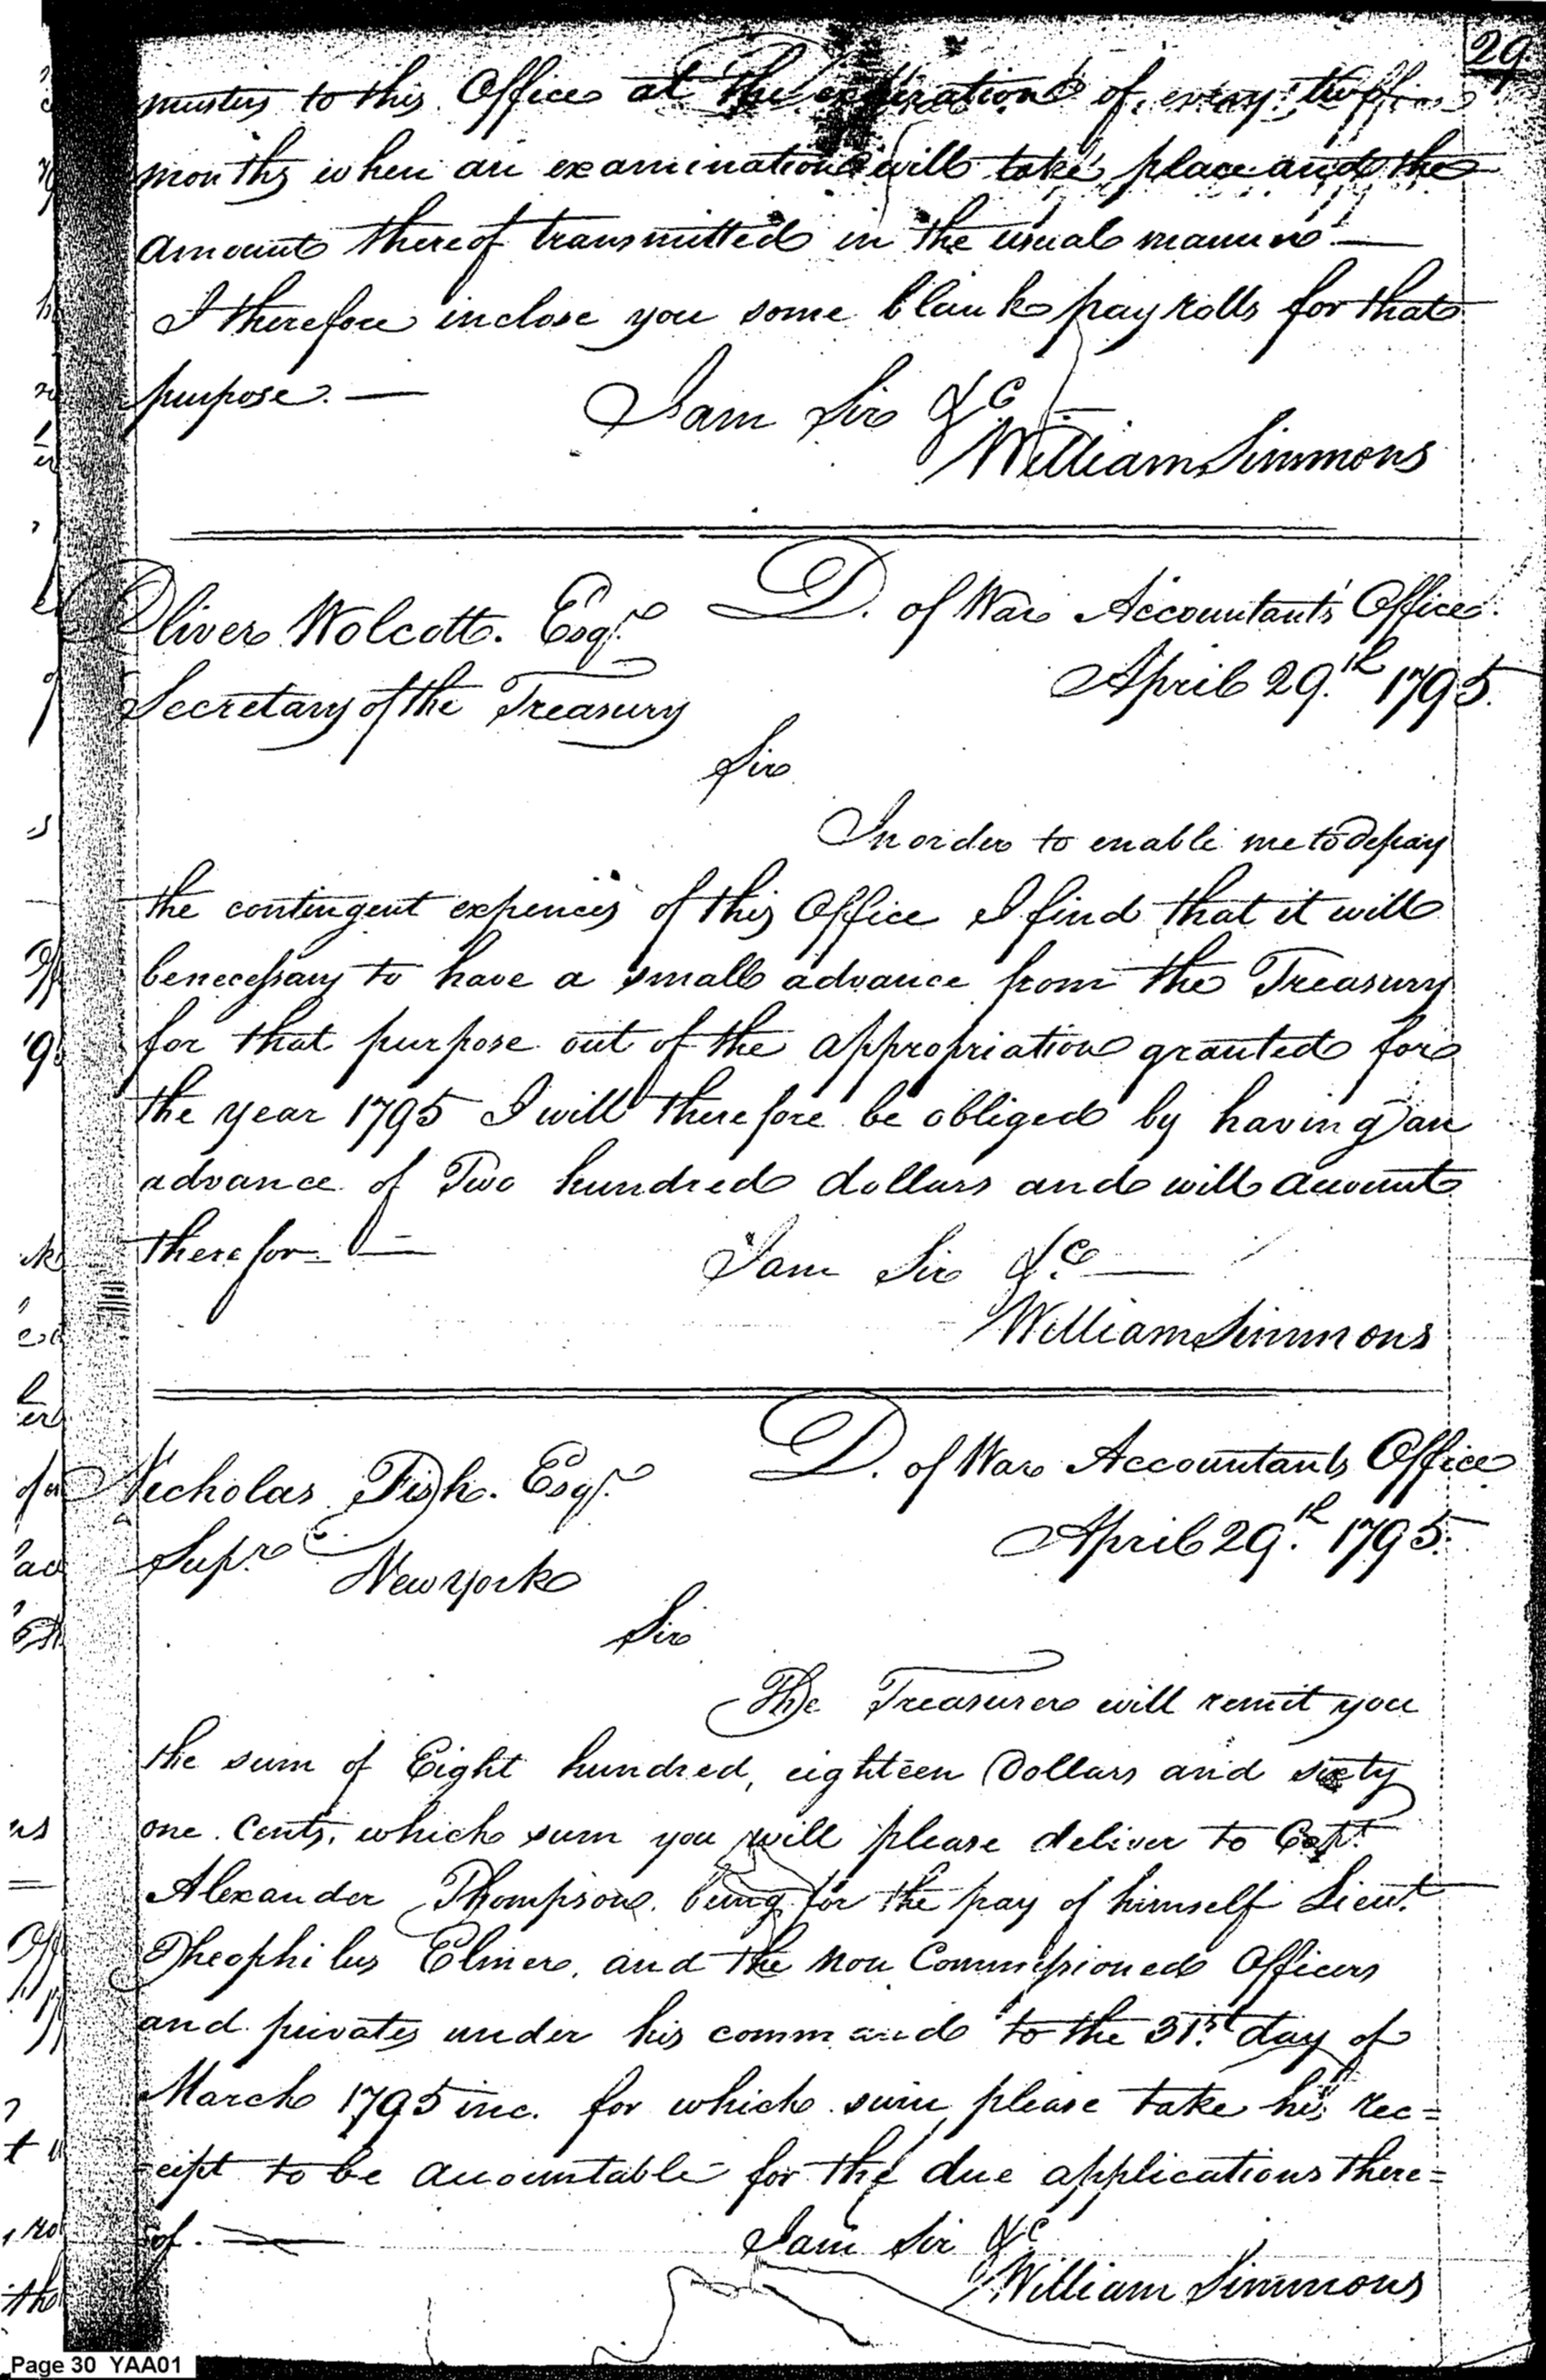 29.
musters to this Office at the expiration of every two
months when an examination will take place and the
amount thereof transmitted in the usual manner —
I therefore inclose you some blank pay rolls for that
purpose. —
I am Sir &c
William Simmons
Oliver Wolcott. Esqr.
D. of War Accountants Office.
Secretary of the Treasury
April 29.th 1795.
Sir
In order to enable me to defray
the contingent expences of this Office I find that it will
be necessary to have a small advance from the Treasury
for that purpose out of the appropriation granted for
the year 1795 I will therefore be obliged by having an
advance of Two hundred dollars and will account
therefor —
I am Sir &c —
William Simmons
Nicholas Fish. Esqr.
D. of War Accountants Office
Supr.
New york
April 29.th 1795.
Sir
The Treasurer will remit you
the sum of Eight hundred, eighteen Dollars and sixty
one Cents, which sum you will please deliver to Capt.
Alexander Thompson. being for the pay of himself Lieut.
Theophilus Elmer, and the non Commissioned Officers
and privates under his command to the 31.st day of
March 1795 inc. for which sum please take his rec=
=eipt to be accountable for the due applications there=
=of. —
I am Sir &c
William Simmons
Page 30 YAA01